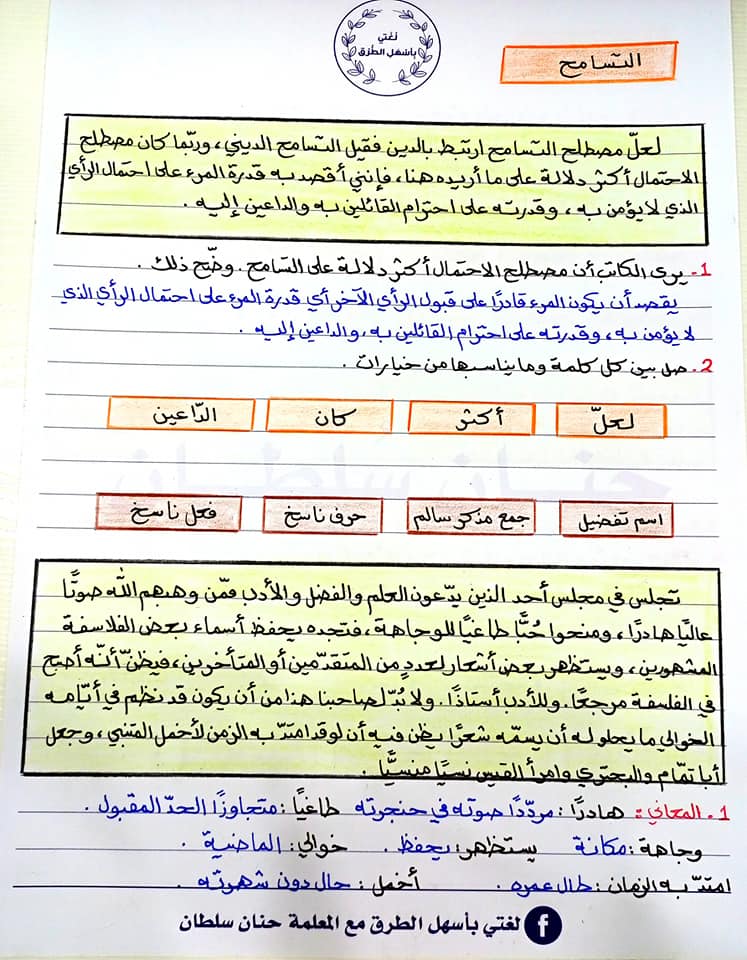 لغتي
بأسهل الطرق
التسامح
لعلّ مصطلح التسامح ارتبط بالدين فقيل التسامح الديني، وربّما كان مصطلح
الاحتمال أكثر دلالة على ما أريده هنا، فإنني أقصد به قدرة المرء على احتمال الرأي
الذي لا يؤمن به، وقدرته على احترام القائلين به والداعين إليه.
1- يرى الكاتب أن مصطلح الاحتمال أكثر دلالة على التسامح. وضّح ذلك.
يقصد أن يكون المرء قادرًا على قبول الرأي الآخر أي قدرة المرء على احتمال الرأي الذي
لا يؤمن به، وقدرته على احترام القائلين به، والداعين إليه.
2. صل بين كل كلمة وما يناسبها من خيارات.
لعلّ أكثر كان الدّاعين
حنان سلطان
اسم تفضيل جمع مذكر سالم حرف ناسخ فعل ناسخ
تجلس في مجلس أحد الذين يدّعون العلم والفضل والأدب فمّن وهبهم الله صوتًا
عاليًا هادرًا، ومنحوا حُبًّا طاغيًا للوجاهة، فتجده يحفظ أسماء بعض الفلاسفة
المشهورين، ويستظهر بعض أشعار لعدد من المتقدّمين أو المتأخرين، فيظنّ أنّه أصبح
في الفلسفة مرجعًا. وللأدب أستاذًا. ولا بُدّ لصاحبنا هذا من أن يكون قد نظم في أيّامه
الخوالي ما يحلو له أن يسمّه شعرًا يظن فيه أن لو قد امتدّ به الزمن لأخمل المتنبي، وجعل
أبا تمّام والبحتري وامرأ القيس نسيًا منسيًّا.
1- المعاني: هادرًا: مردّدًا صوته في حنجرته طاغيًا: متجاوزًا الحدّ المقبول.
وجاهة: مكانة يستظهر: يحفظ. خوالي: الماضية.
امتدّ به الزمان: طال عمره. أخمل: حال دون شهرته.
لغتي بأسهل الطرق مع المعلمة حنان سلطان